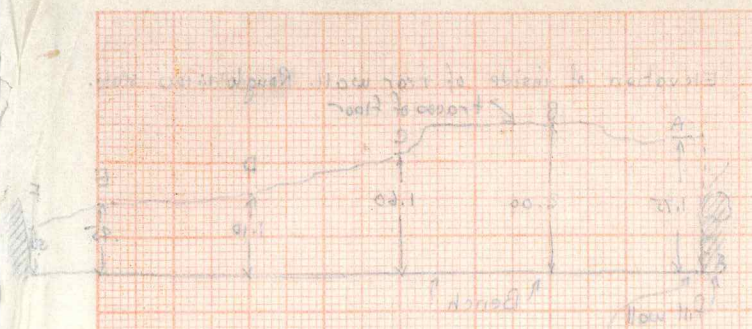 Elevation of inside of rear wall. Rough
traces of floor
A
B
C
D
E
1.75
2.00
1.60
1.10
.95
Bench
Fill wall